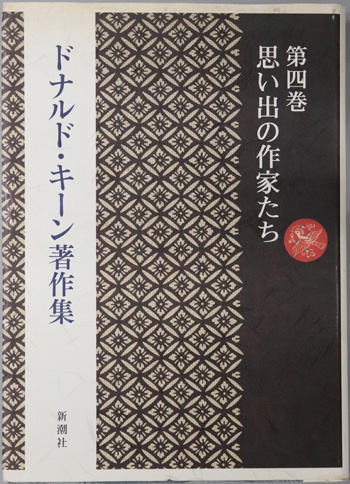 第四巻
思い出の作家たち
ドナルド・キーン著作集
新潮社